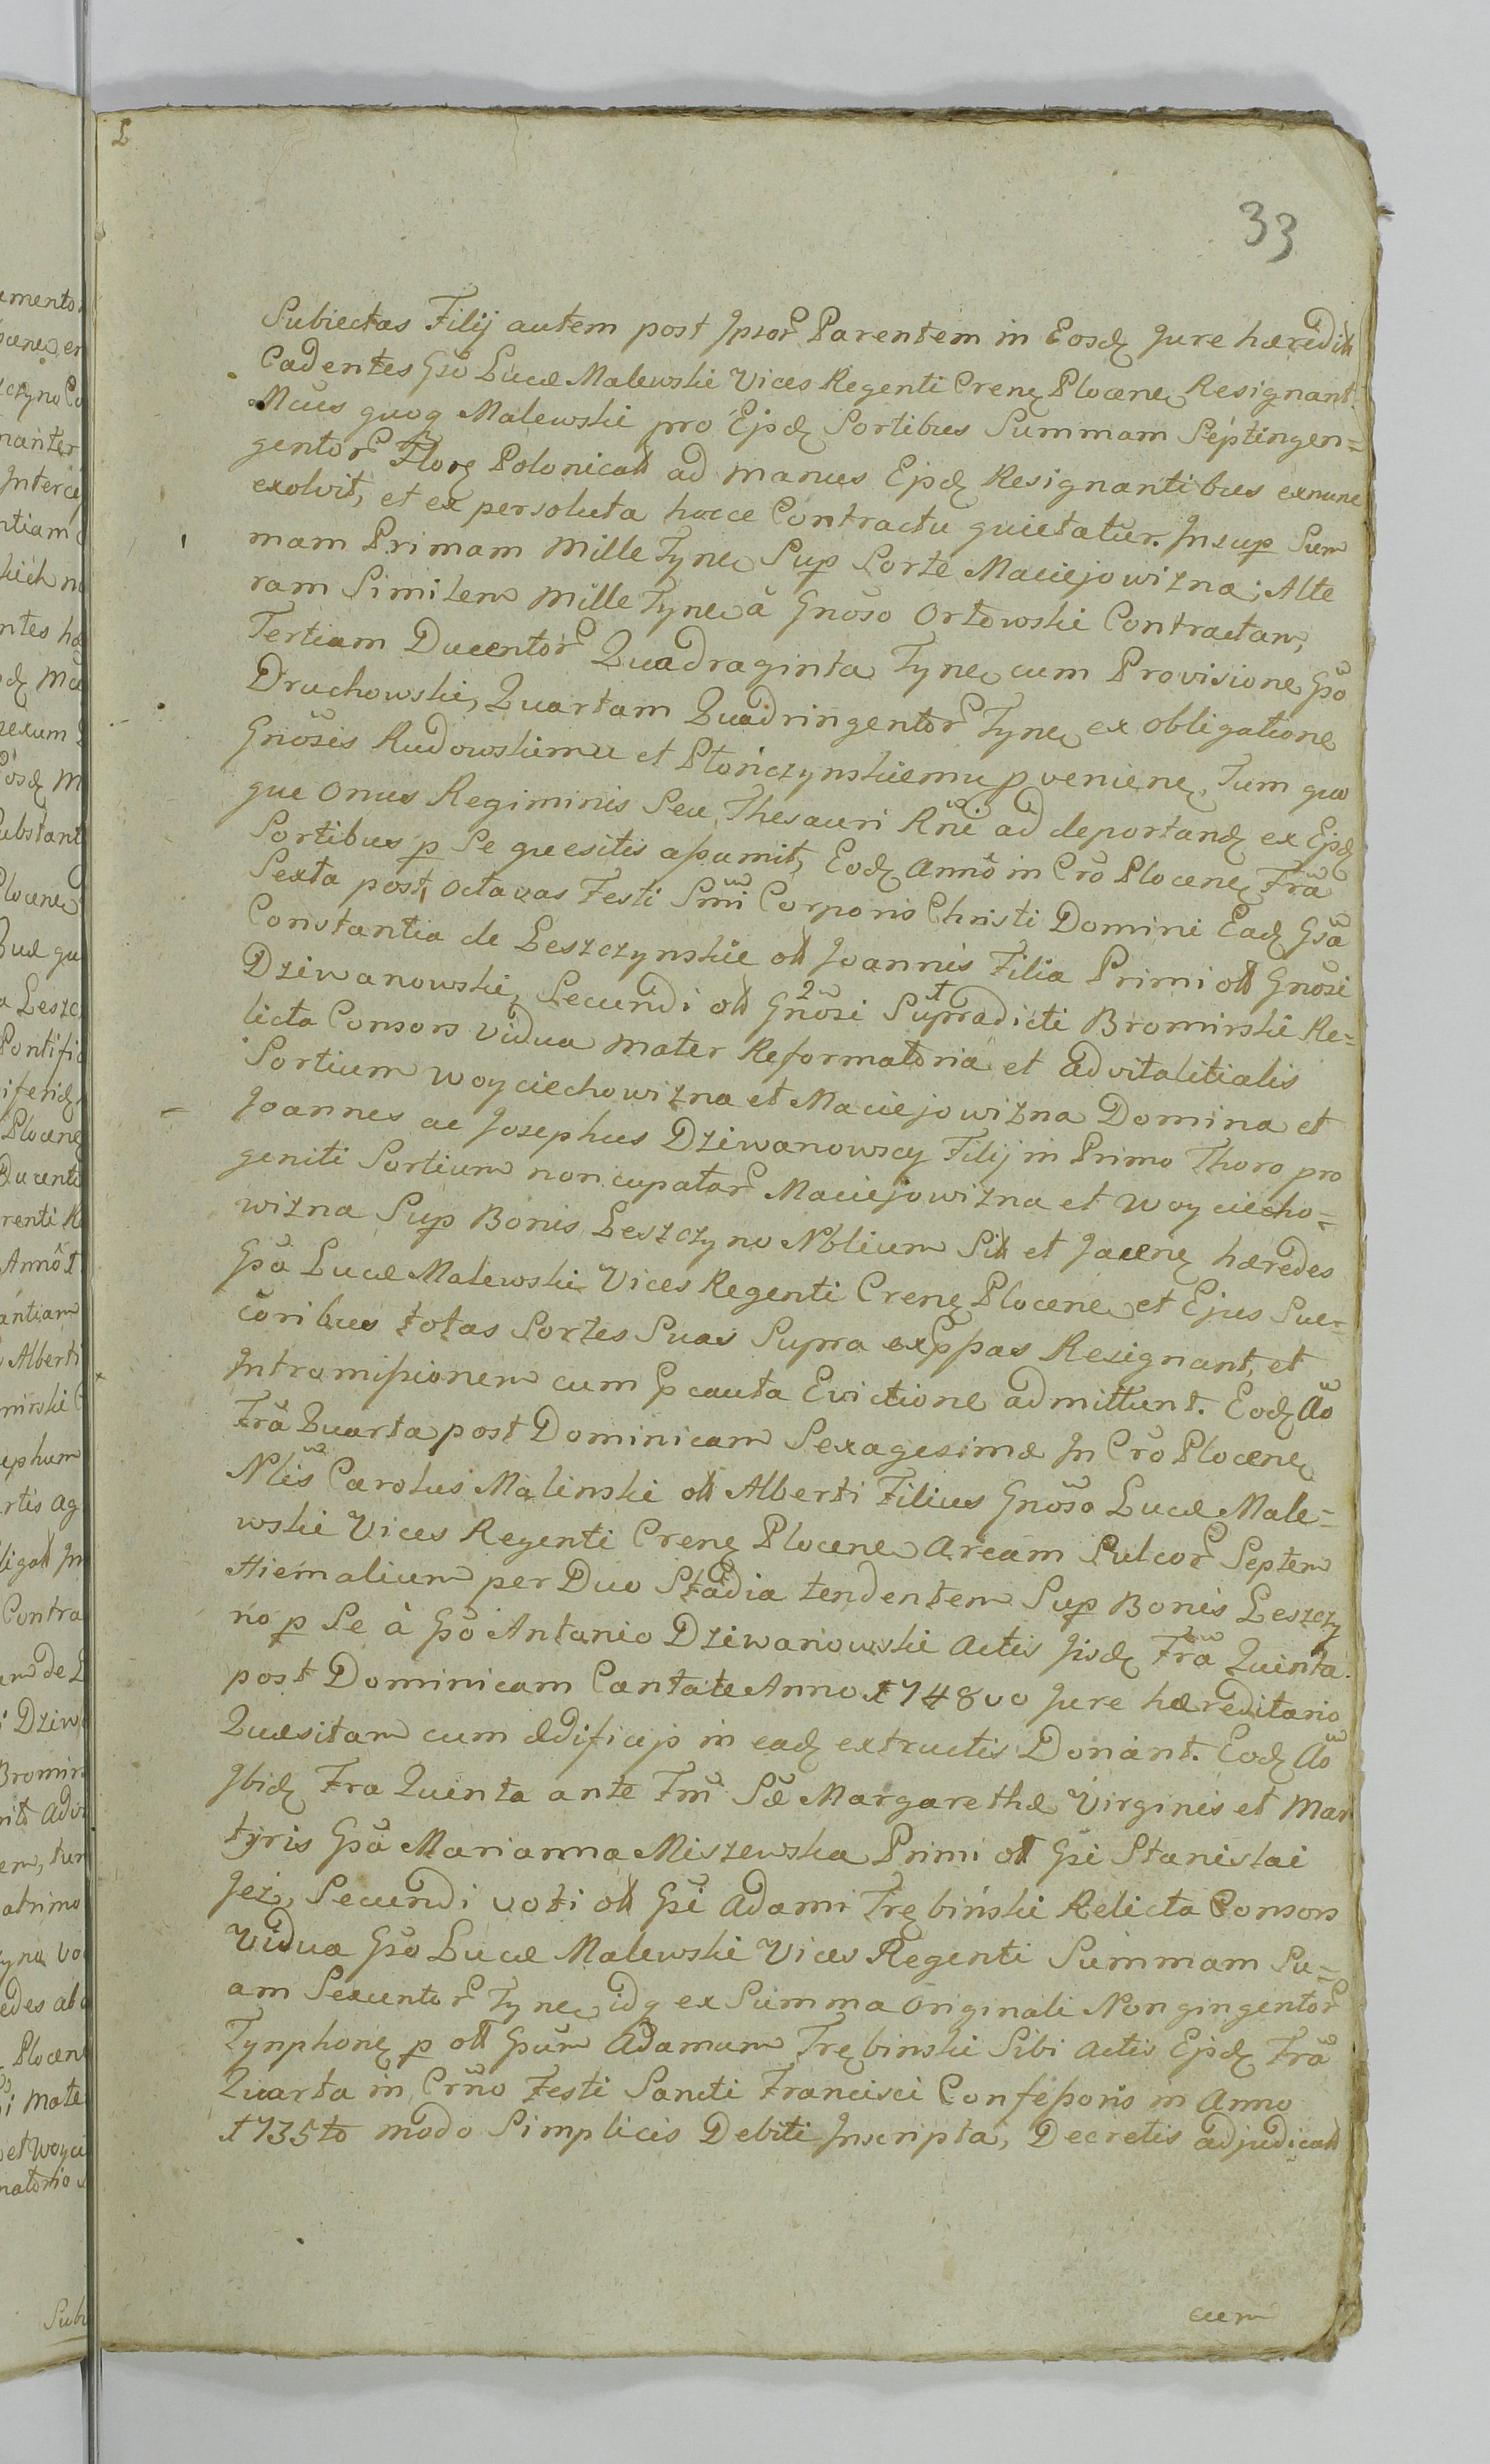 33
Subiectas Filij autem post Ipsor Parentem in Eosdꝫ Jure hæredit
Cadentes Gso Lucæ Malewski Vices Regenti Crenꝫ Plocenꝫ Resignant.
Mcus quoq Malewski pro Ejsdꝫ Sortibus Summam Septingen=
gentor Florꝫ Polonicall ad manus Ejsdꝫ Resignantibus exnunc
exolvit, et ex persoluta hocce Contractu quietatur. Insup Sum
mam Primam mille Tyne Sup Sorte Maciejowizna; Alte
ram Similem mille Tyne â Gnoso Ortowski Contractam,
Tertiam Ducentor Quadraginta Tyne cum Provisione Gso
Druchowski, Quartam Quadringentor Tyne ex obligatione
Gnosis Rudowskiemu et Płonczynskiemu pvenienꝫ. Tum quo
que Onus Regiminis Seu Thesauri Rni ad deportandꝫ ex Ejsdꝫ
Sortibus p Se quesitis aßumit, Eodꝫ Anno in Cro Plocenꝫ Fra
Sexta post Octavas Festi Smi Corporis Christi Domini Eadꝫ Gsa
Constantia de Leszczynskie oll Joannis Filia Primi oll Gnosi
Dziwanowski, Secundi oll Gnosi Supradicti Bromirski Re=
licta Consors vidua mater Reformatoria et advitalitialis
Sortium Woyciechowizna et Maciejowizna Domina et
Joannes ac Josephus Dziwanowscy Filij in Primo Thoro pro
geniti Sortium noncupatar Maciejowizna et Woyciecho=
wizna Sup Bonis Leszczyno Nblium Sitt et Jacenꝫ hæredes
Gso Lucæ Malewski Vices Regenti Crenꝫ Plocene et Ejus Suc=
coribus totas Sortes Suas Supra exppas Resignant, et
Intromißionem cum Pcauta Evictione admittunt. Eodꝫ Ao
Fra Quarta post Dominicam Sexagesimæ In Cro Plocenꝫ
Nlis Carolus Malinski oll Alberti Filius Gnoso Lucæ Male=
wski Vices Regenti Crenꝫ Plocene Aream Sulcor Septem
Hiemalium per Duo Stadia tendentem Sup Bonis Leszczy
no p Se à Gso Antonio Dziwanowski Actis Jisdꝫ Fra Quinta
post Dominicam Cantate Anno 1748vo Jure hæreditario
Quæsitam cum ædificijs in eadꝫ extructis Donant. Eodꝫ Ao
Ibidꝫ Fra Quinta ante Fm Sæ Margarethæ Virginis et Mar
tyris Gsa Marianna Miszewska Primi oll Gsi Stanislai
Jeż, Secundi voti oll Gsi Adami Trębiński Relicta Consors
Vidua Gso Lucæ Malewski Vices Regenti Summam Su=
am Sexcentor Tyne, idq ex Summa Originali Nongingentor
Tynphonꝫ p oll Gsum Adamum Trębinski Sibi Actis Ejsdꝫ Fra
Quarta in Crno Festi Sancti Francisci Confeßoris in Anno
1735to modo Simplicis Debiti Inscripta, Decretis adjudicall
cum